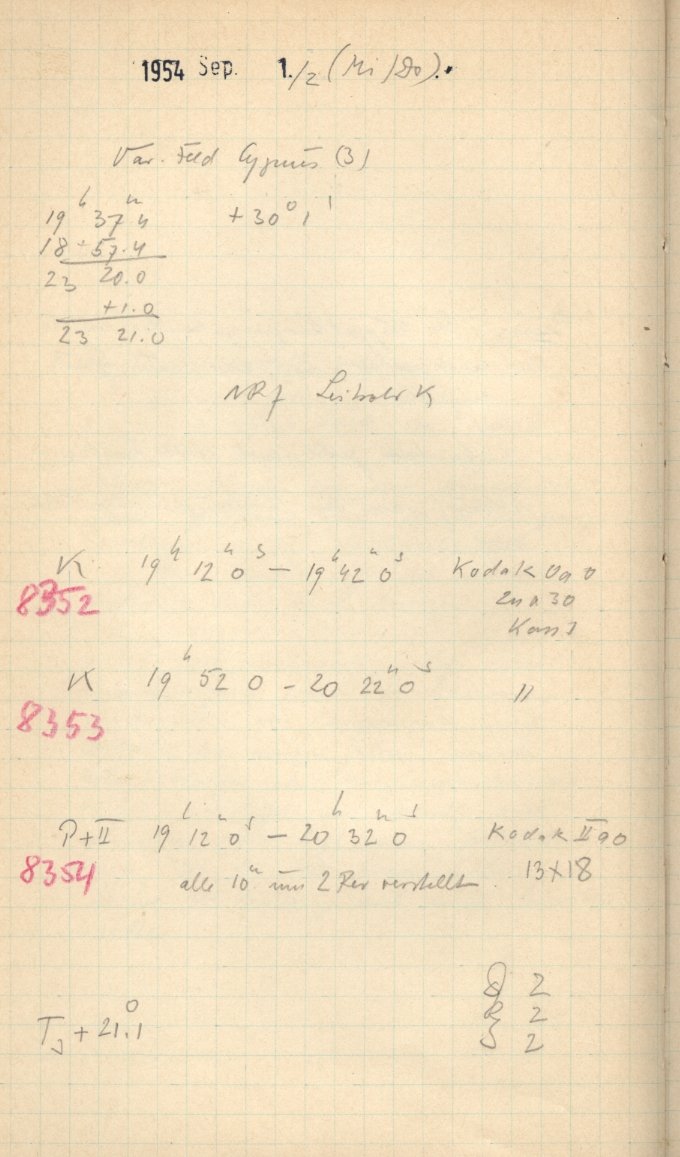 1954 Sep. 1./2 (Mi/Do).
Var. Feld Cygnus (3)
19h 37m 4 +30° 1'
18 57.4
23 20.0
+1.0
23 21.0
K 19h 12m 0s – 19h 42m 0s Kodak 0a0
8352
K 19h 52 0 – 20 22m 0s "
8353
P+II 19h 12m 0s – 20h 32m 0s Kodak IIa0
8354 alle 10m um 2 Rev verstellt. 13x18
2
2
TJ +21.°1 S 2